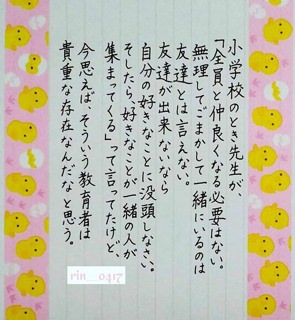 小学校のとき先生が、
「全員と仲良くなる必要はない。
無理して、ごまかして一緒にいるのは
友達とは言えない。
友達が出来ないなら
自分の好きなことに没頭しなさい。
そしたら、好きなことが一緒の人が
集まってくる」って言ってたけど、
今思えば、そういう教育者は
貴重な存在なんだなと思う。
rin__0417